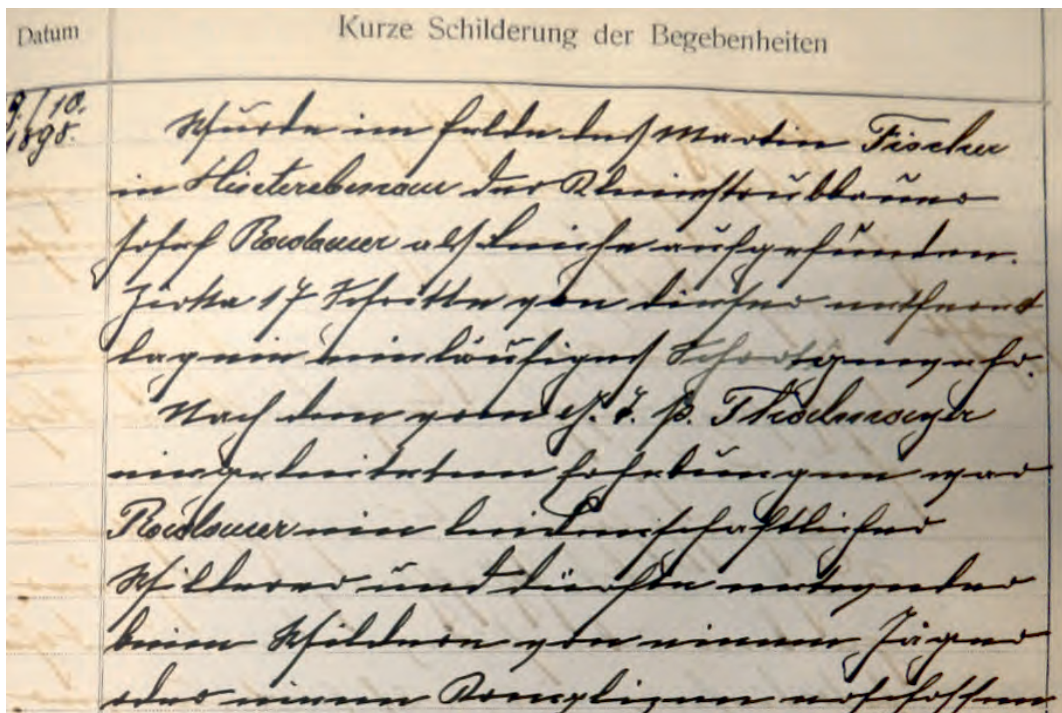 Datum
Kurze Schilderung der Begebenheiten
9./10.
1898.
Wurde im Felde des Martin Fischer
in Hinterebenau der Kleinstrublbauer
Josef Radlauer als Leiche aufgefunden.
Zirka 17 Schritte von dieser entfernt
lag ein einläufiges Schrotgewehr.
Nach dem vom
eingeleiteten Erhebungen war
ein leidenschaftlicher
Wilderer und dürfte entweder
beim Wildern von einem Jäger
oder einem Komplizen erschossen